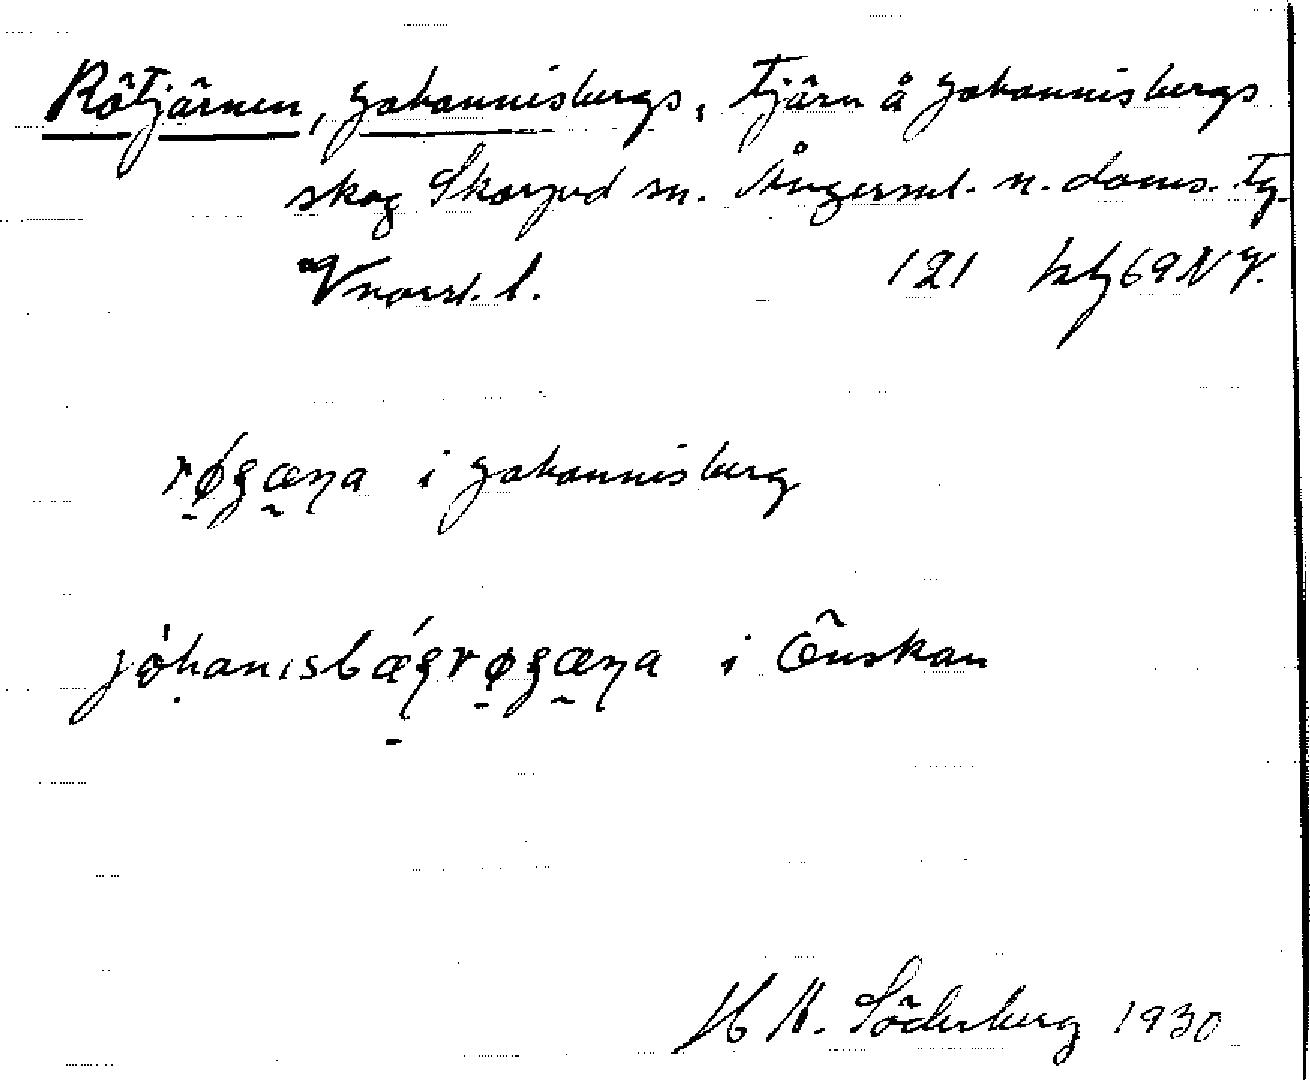 Rötjärnen, Johannisbergs, Tjärn å Johannisbergs
skog Skorped sn. Ångerml. n. doms. Tg.
Vnorrl. l. 121 61 69 NV.
røgæŋa i Johannisberg
jóhanisbǽgrøgæŋa i Önskan
H. Söderberg 1930